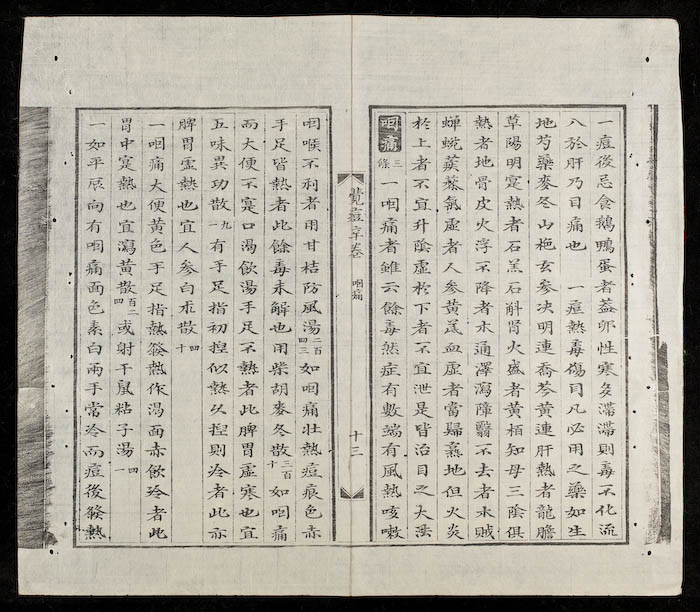 一痘後忌食鵝鴨蛋者蓋卵性寒多滯滯則毒不化流
入於肝乃目痛也　一痘熱毒傷目凡必用之藥如生
地芍藥麥冬山梔玄參决明連喬芩黃連肝熱者龍膽
草陽明寔熱者石羔石斛腎火盛者黃栢知母三陰俱
熱者地骨皮火浮不降者木通澤瀉障翳不去者木賊
蟬蛻蒺藜氣虛者人參黃芪血虛者當歸熹地但火炎
於上者不宜升陰虛於下者不宜泄是皆治目之大法
咽痛 三條 一咽痛者雖云餘毒然症有數端有風熱咳嗽
覽痘草卷　咽痛　十三
咽喉不利者用甘桔防風湯二百四三如咽痛壯熱痘痕色赤
手足皆熱者此餘毒未解也用柴胡麥冬散三百十如咽痛
而大便不寔口渴飲湯手足不熱者此脾胃虛寒也宜
五味異功散九一有手足指初揑似熱久揑則冷者此亦
脾胃虛熱也宜人參白朮散四十
一咽痛大便黃色手足指熱發熱作渴面赤飲冷者此
胃中寔熱也宜瀉黃散百二四或射干鼠粘子湯四一
一如平居向有咽痛面色素白兩手常冷而痘後發熱